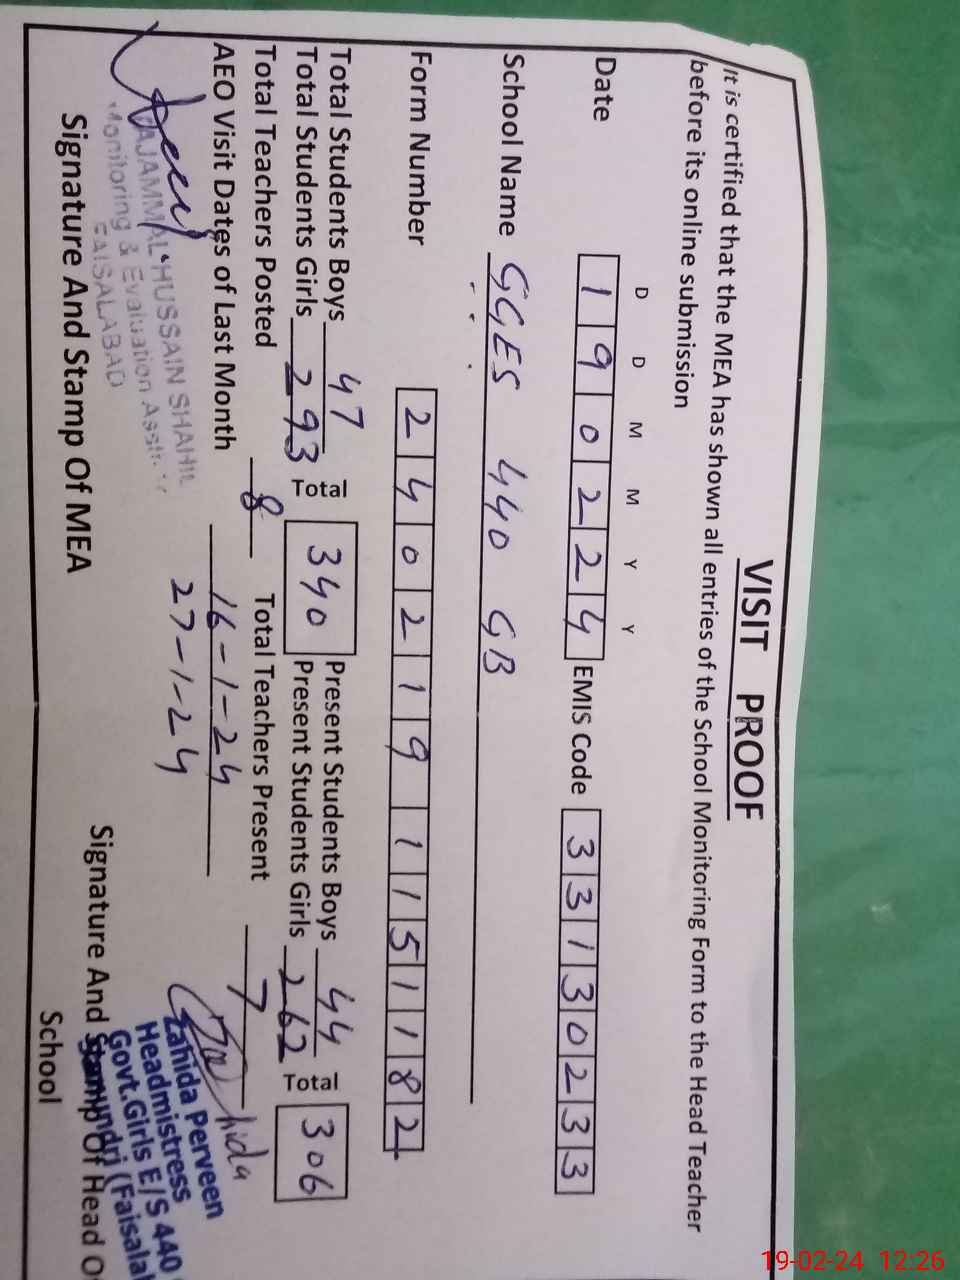 VISIT PROOF
It is certified that the MEA has shown all entries of the School Monitoring Form to the Head Teacher
before its online submission
D D M M Y Y
Date 1 9 0 2 2 4 EMIS Code 3 3 1 3 0 2 3 3
School Name GGES 440 GB
Form Number 2 4 0 2 1 9 1 1 5 1 1 8 2
Total Students Boys 47 Present Students Boys 44
Total Students Girls 293 Total 340 Present Students Girls 262 Total 306
Total Teachers Posted 8 Total Teachers Present 7
AEO Visit Dates of Last Month 16-1-24
27-1-24
TAJAMMAL HUSSAIN SHAHI
Monitoring & Evaluation Asstt.
FAISALABAD
Signature And Stamp Of MEA
Zahida Perveen
Headmistress
Govt.Girls E/S 440
Signature And Stamp Of Head Of
School
19-02-24 12:26